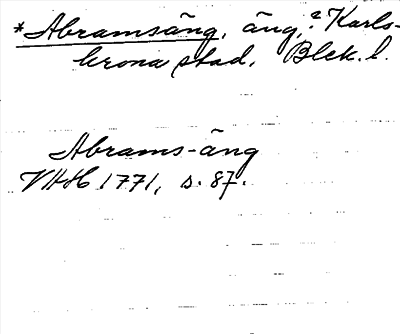 *Abramsäng, äng, ? Karls-
krona stad, Blek. l.
Abrams-äng
VHH 1771, s. 87.